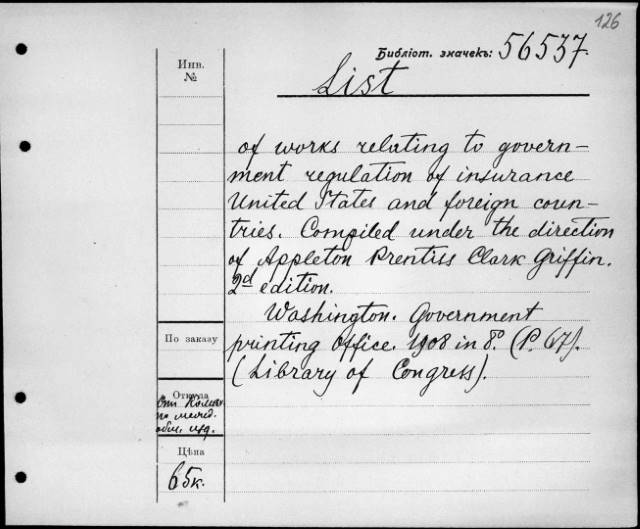 126
Инв.
№
Библіот. значекъ: 56537
List
of works relating to govern-
ment regulation of insurance
United States and foreign coun-
tries. Compiled under the direction
of Appleton Prentiss Clark Griffin.
2d edition.
Washington. Government
printing office. 1908 in 8º. (P. 67).
(Library of Congress).
По заказу
Откуда
по межд.
обм. изд.
Цѣна
65к.